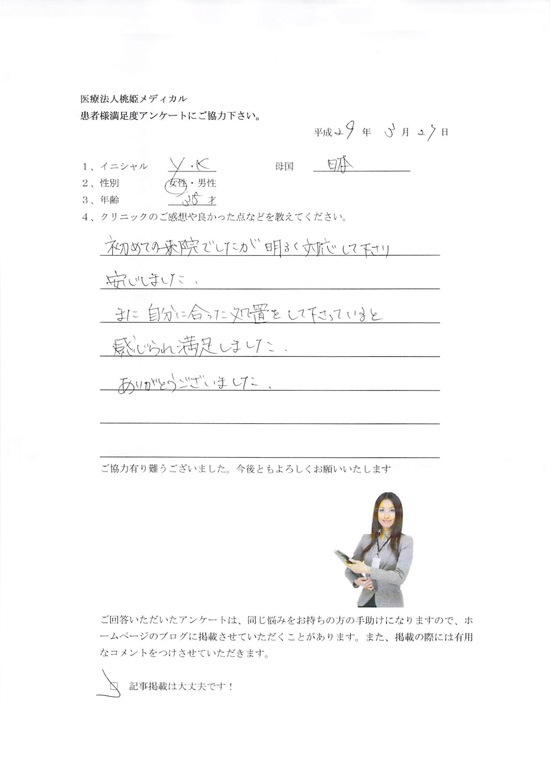 医療法人桃姫メディカル
患者様満足度アンケートにご協力下さい。
平成 29 年 5 月 27 日
1、イニシャル Y・K 母国 日本
2、性別 女性・男性
3、年齢 才
4、クリニックのご感想や良かった点などを教えてください。
初めての来院でしたが 明るく対応して下さり
安心しました。
また 自分に合った処置をして下さっていると
感じられ満足しました。
ありがとうございました。
ご協力有り難うございました。今後ともよろしくお願いいたします
ご回答いただいたアンケートは、同じ悩みをお持ちの方の手助けになりますので、ホ
ームページのブログに掲載させていただくことがあります。また、掲載の際には有用
なコメントをつけさせていただきます。
□ 記事掲載は大丈夫です！